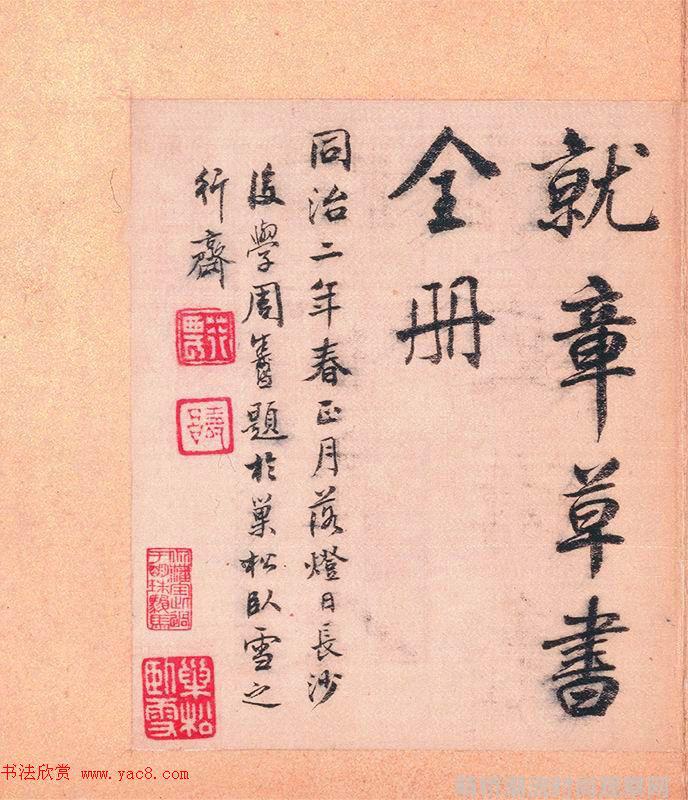 就章草書
全冊
同治二年春正月落燈日長沙
後學周 題於巢松臥雪之
行齋
巢松臥雪
书法欣赏 www.yac8.com